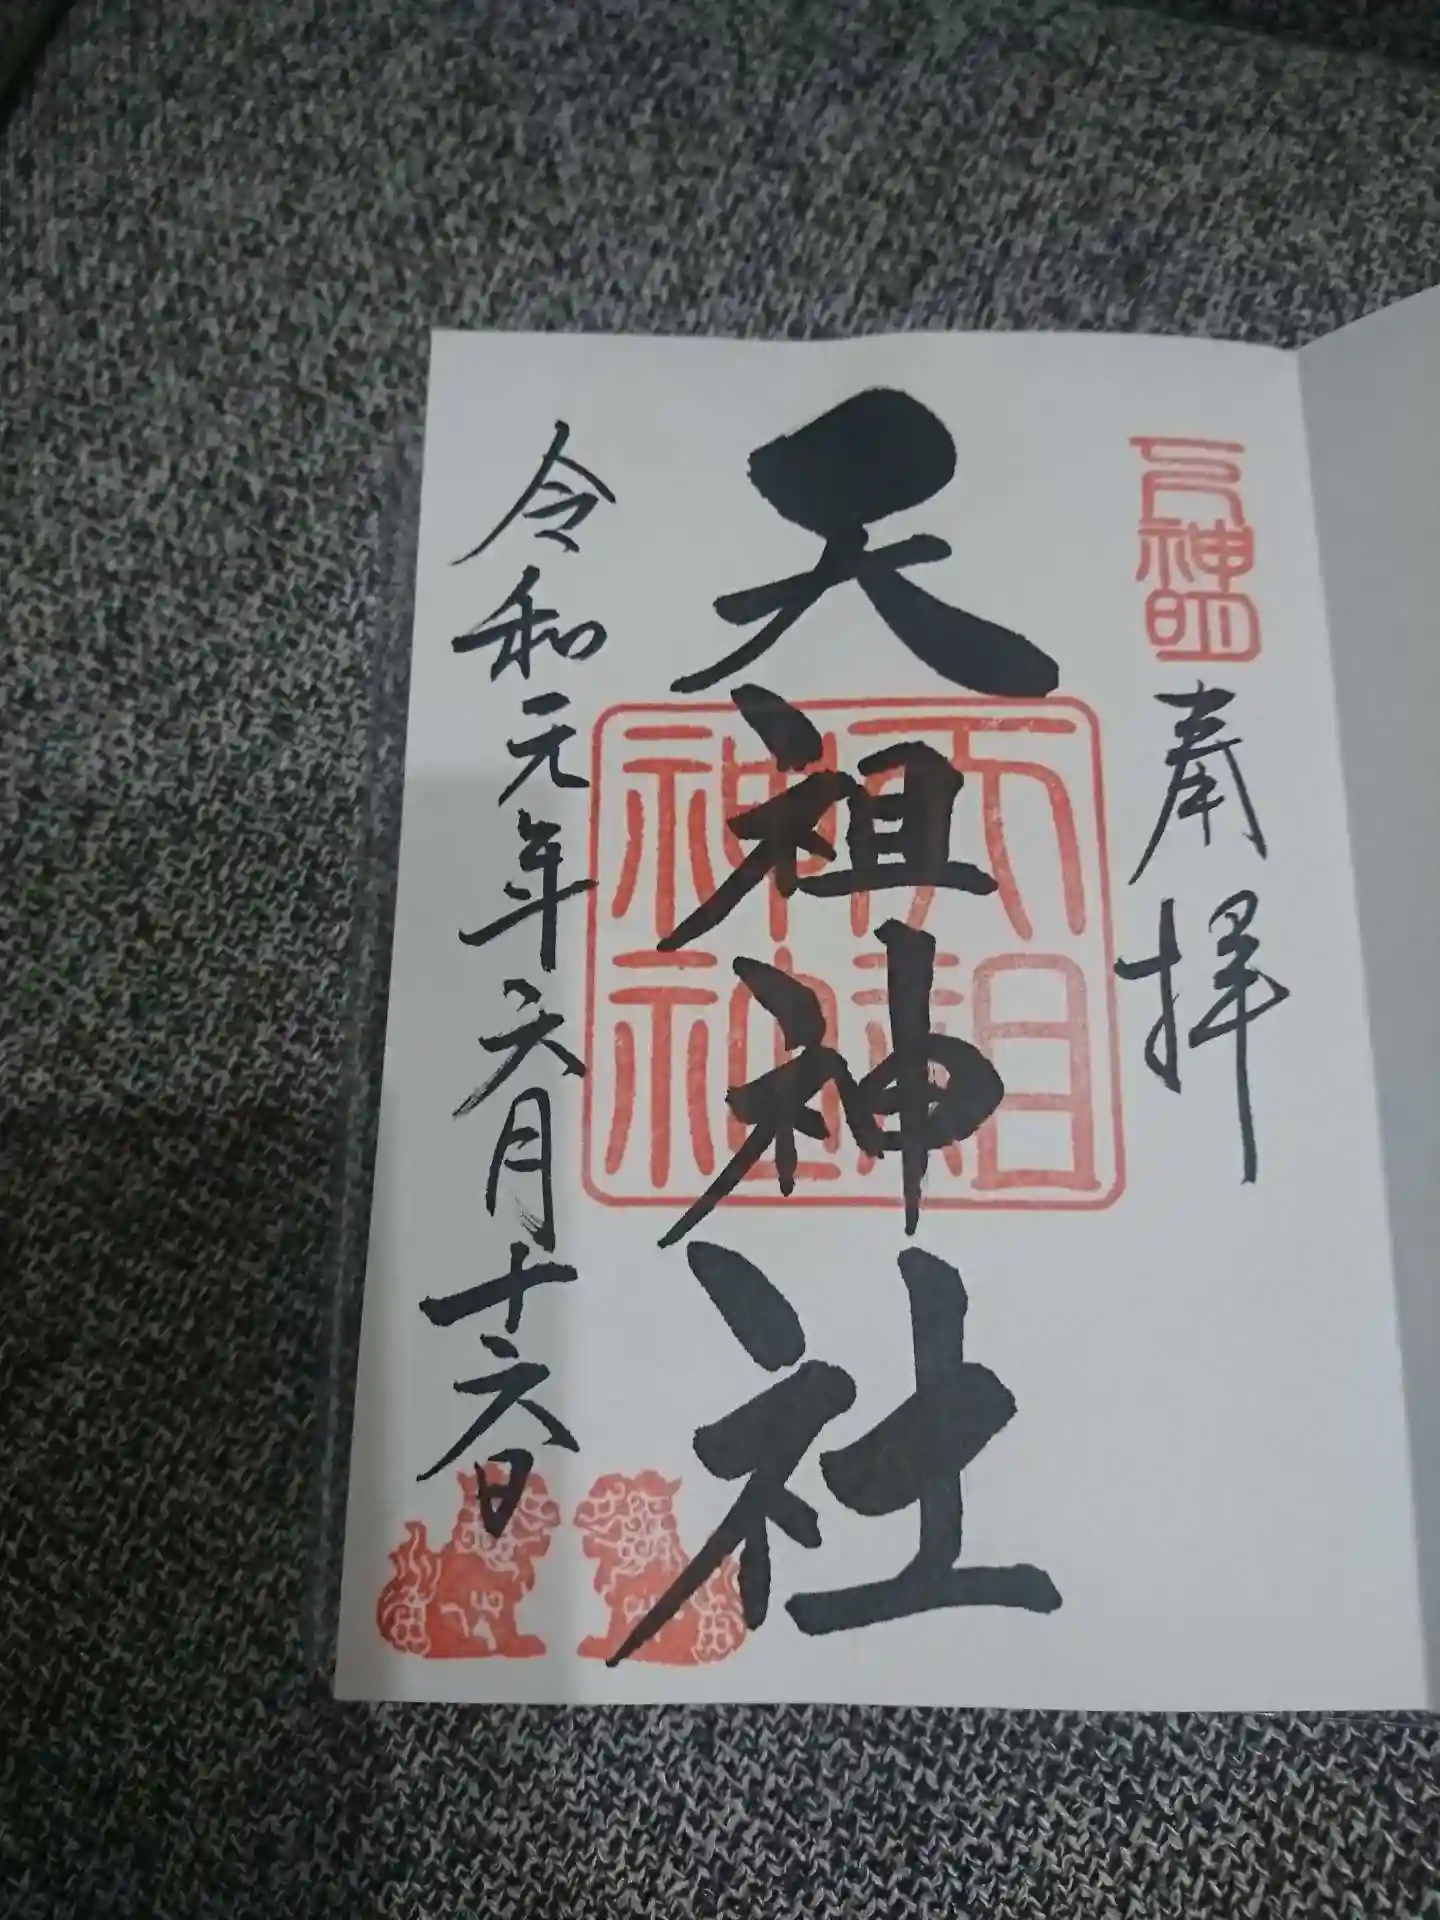 神明
奉拝
天祖神社
天祖
神社
令和元年六月十六日